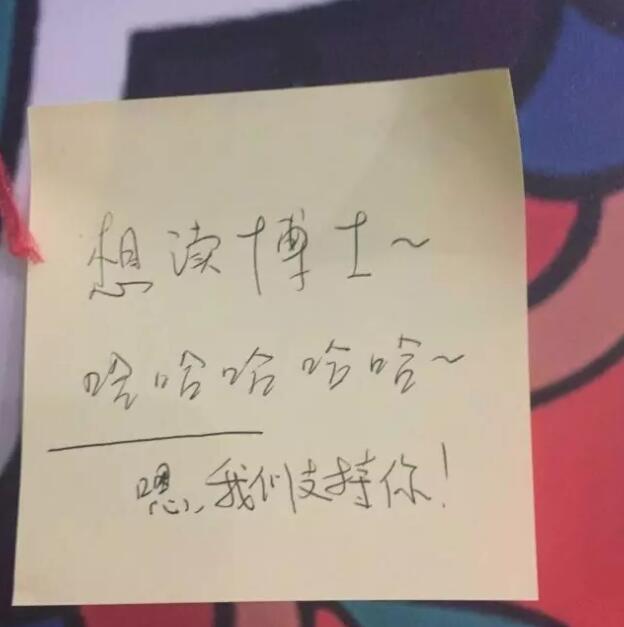 想读博士~
哈哈哈哈哈~
嗯,我们支持你!